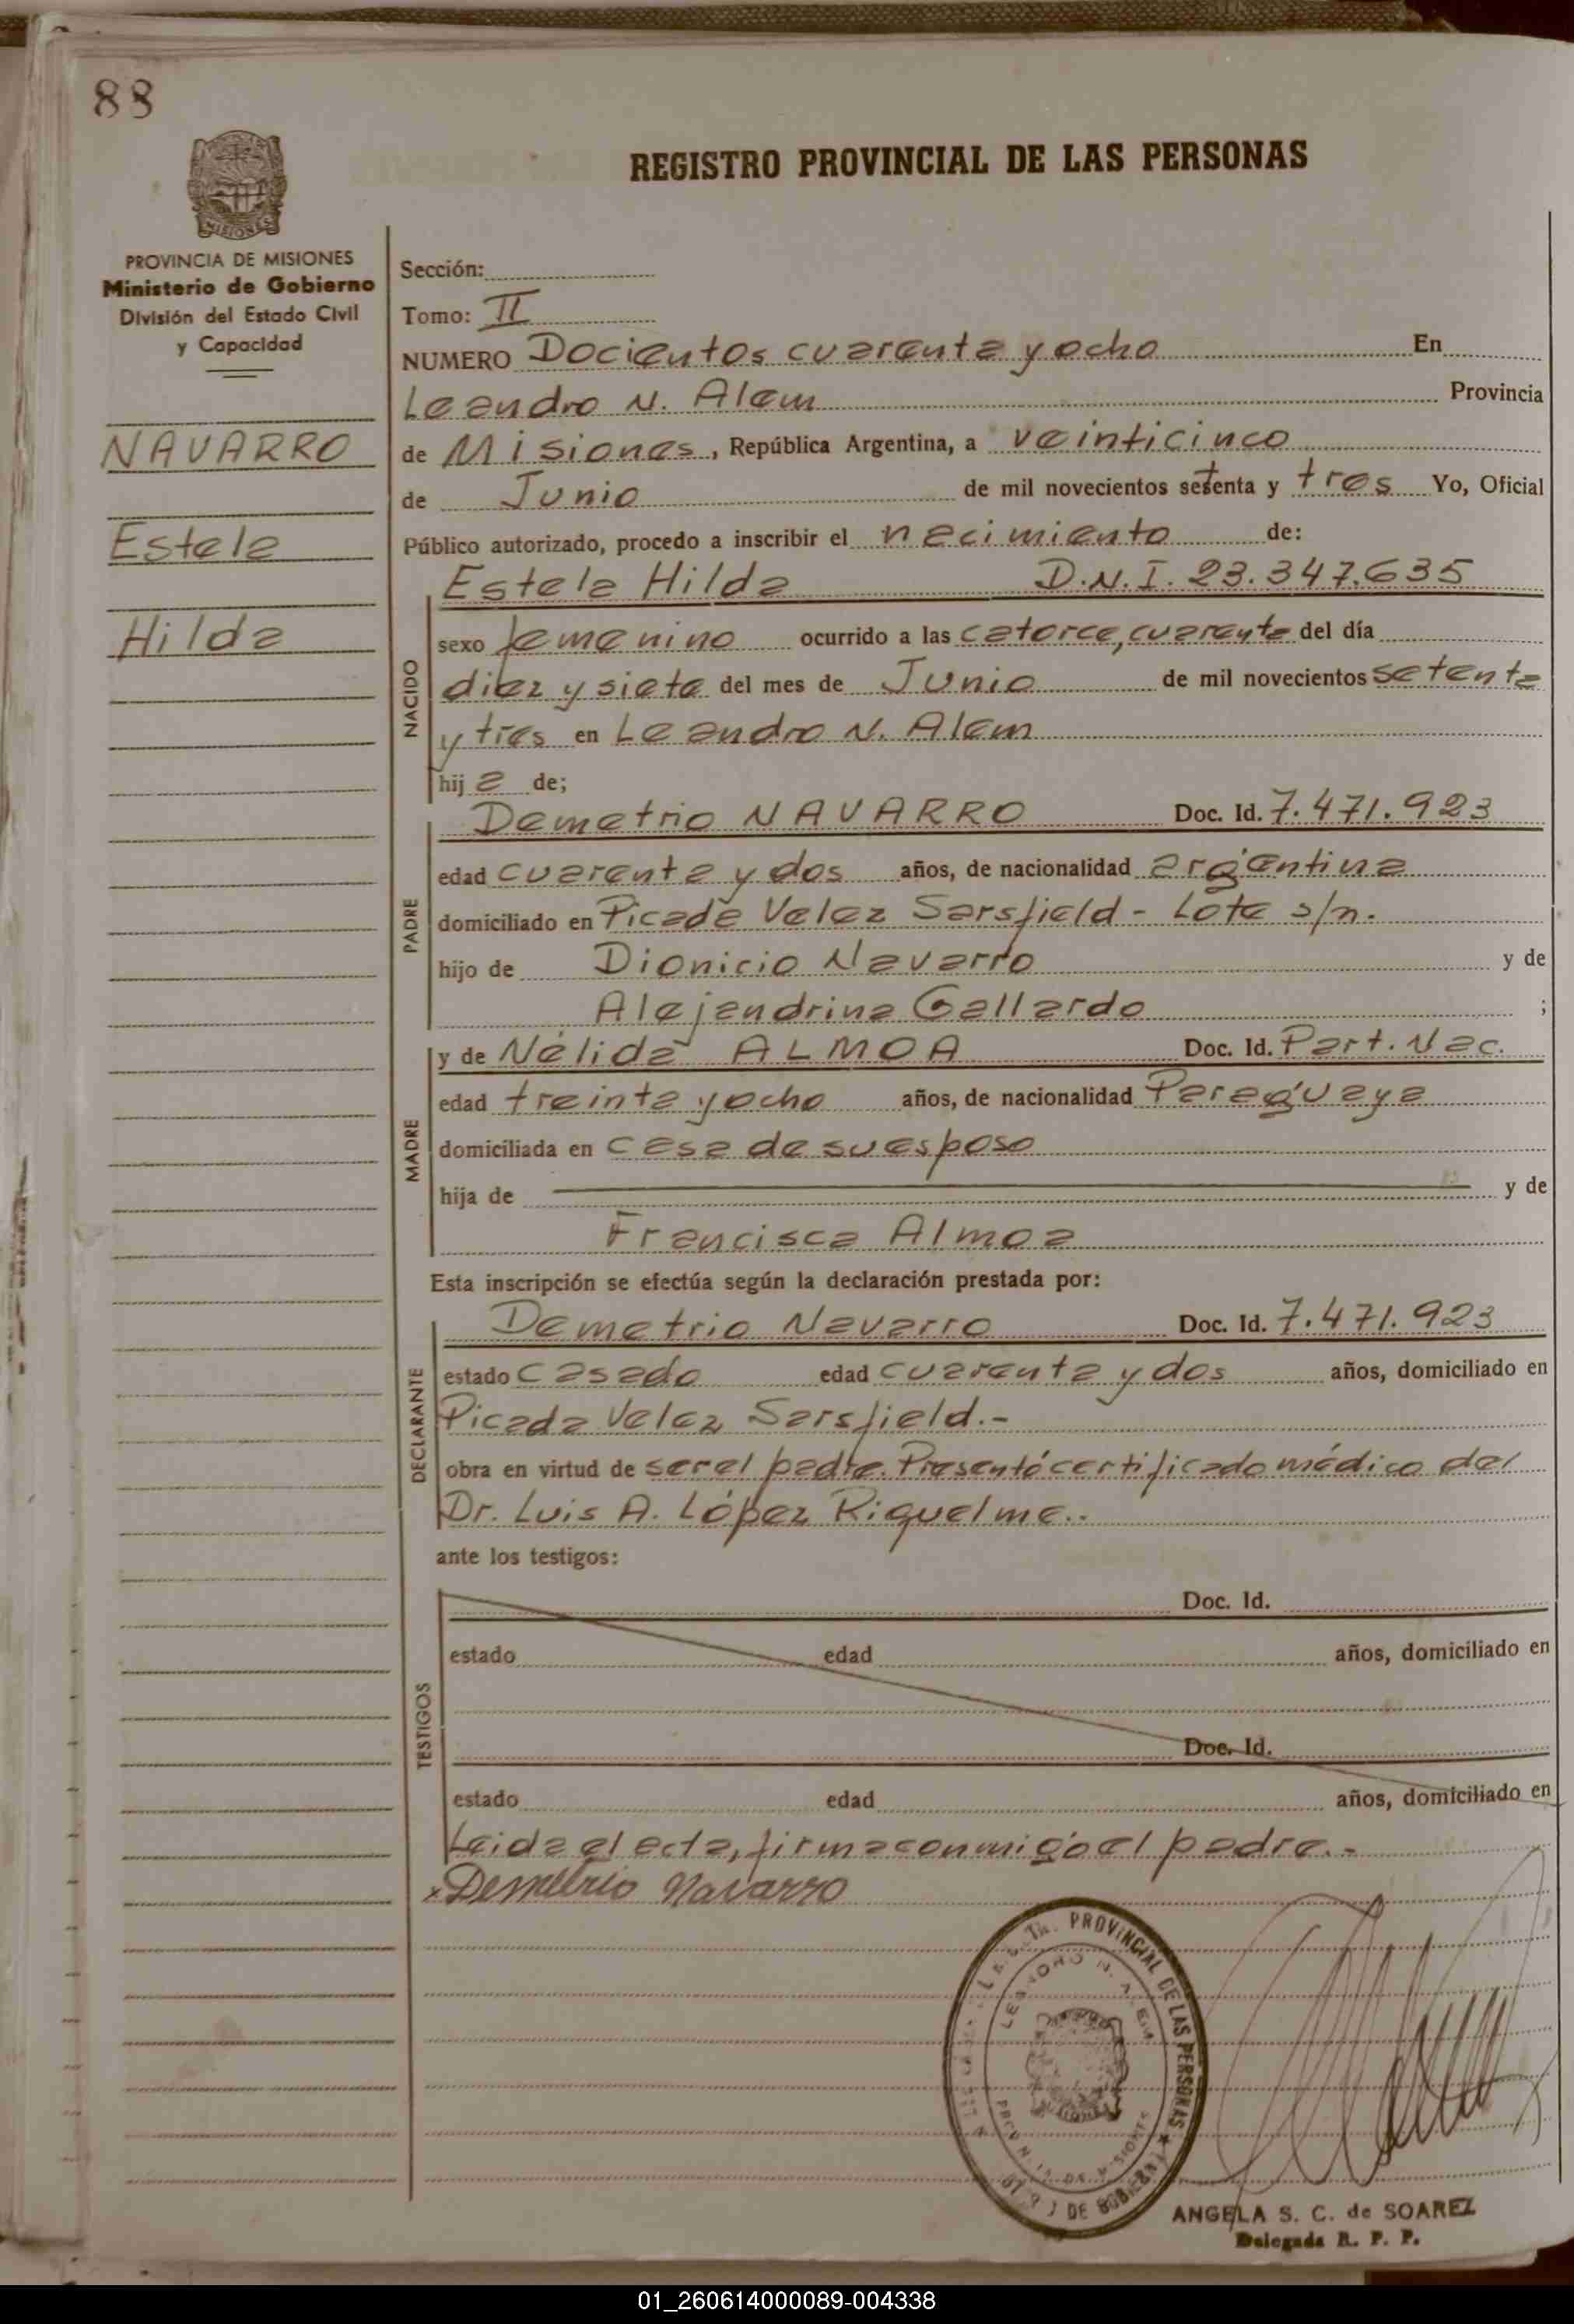 88
REGISTRO PROVINCIAL DE LAS PERSONAS
MISIONES
PROVINCIA DE MISIONES
Ministerio de Gobierno
División del Estado Civil
y Capacidad
NAVARRO
Estela
Hilda
Sección:
Tomo: II
NUMERO Docientos cuarenta y ocho En
Leandro N. Alem Provincia
de Misiones, República Argentina, a veinticinco
de Junio de mil novecientos setenta y tres Yo, Oficial
Público autorizado, procedo a inscribir el nacimiento de:
NACIDO
Estela Hilda D.N.I. 23.347.635
sexo femenino ocurrido a las catorce, cuarenta del día
diez y siete del mes de Junio de mil novecientos setenta
y tres en Leandro N. Alem
hij a de;
PADRE
Demetrio NAVARRO Doc. Id. 7.471.923
edad cuarenta y dos años, de nacionalidad argentina
domiciliado en Picada Velez Sarsfield - Lote s/n.
hijo de Dionicio Navarro y de
Alejandrina Gallardo ;
MADRE
y de Nélida ALMOA Doc. Id. Part. Nac.
edad treinta y ocho años, de nacionalidad Paraguaya
domiciliada en casa de su esposo
hija de y de
Francisca Almoa
Esta inscripción se efectúa según la declaración prestada por:
DECLARANTE
Demetrio Navarro Doc. Id. 7.471.923
estado casado edad cuarenta y dos años, domiciliado en
Picada Velez Sarsfield.-
obra en virtud de ser el padre. Presentó certificado médico del
Dr. Luis A. López Riquelme..
ante los testigos:
TESTIGOS
Doc. Id.
estado edad años, domiciliado en
Doc. Id.
estado edad años, domiciliado en
Leida el acta, firma conmigo el padre.-
x Demetrio Navarro
PROVINCIAL DE LAS PERSONAS
LEANDRO N. ALEM
MISIONES
ANGELA S. C. de SOAREZ
Delegada R. P. P.
01_260614000089-004338